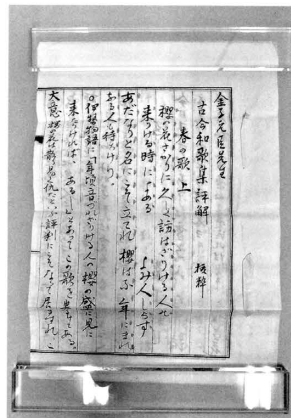 金子元臣先生
古今和歌集評解 抜粋
春の歌 上
櫻の花さかりに久しく訪はざりける人の
来りける時によみける
よみ人しらず
あだなりと名にこそ立てれ櫻ばな年にまれ
なる人も待ちけり
伊勢物語に「年頃音づれざりける人の櫻の盛に見に
来たりければ、あるじ」とあつてこの歌を出してある。